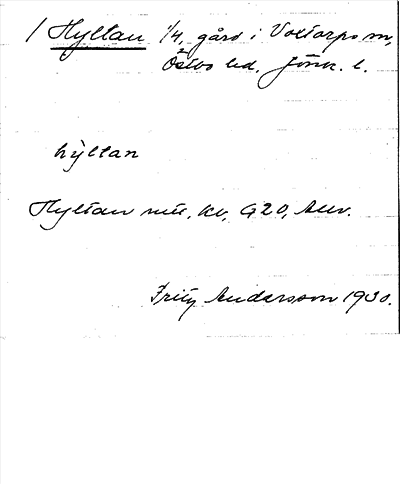 1 Hyltan 1/4, gård i Voxtorps sn,
Östbo hd, Jönk. l.
hỳltan
Hyltan mtl, kv, G20, Anv.
Fritz Andersson 1930.